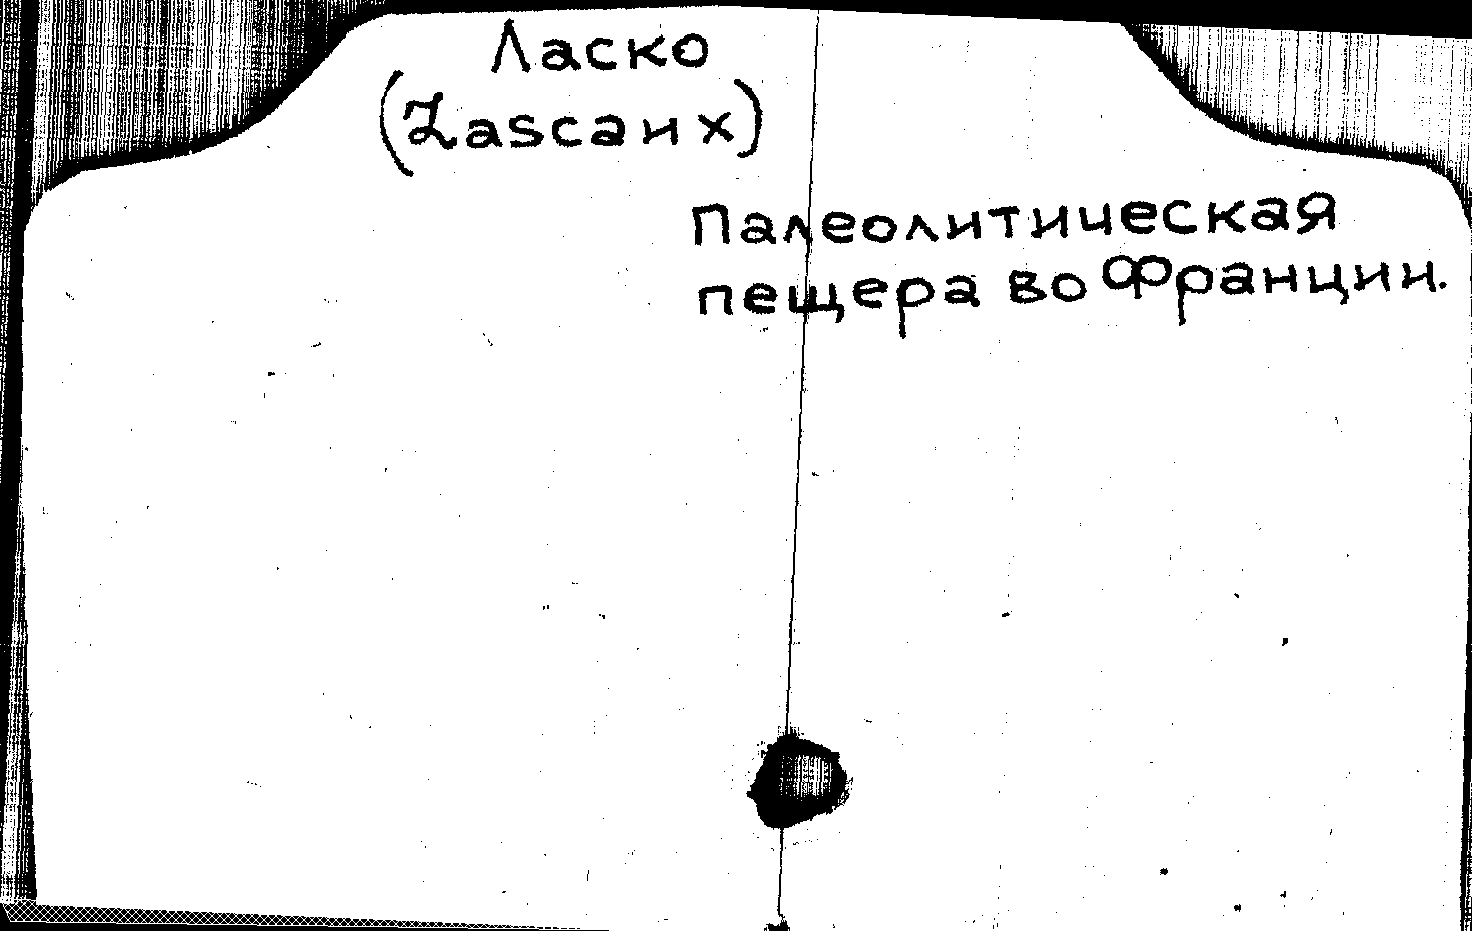 Ласко
(Lascaux)
Палеолитическая
пещера во Франции.